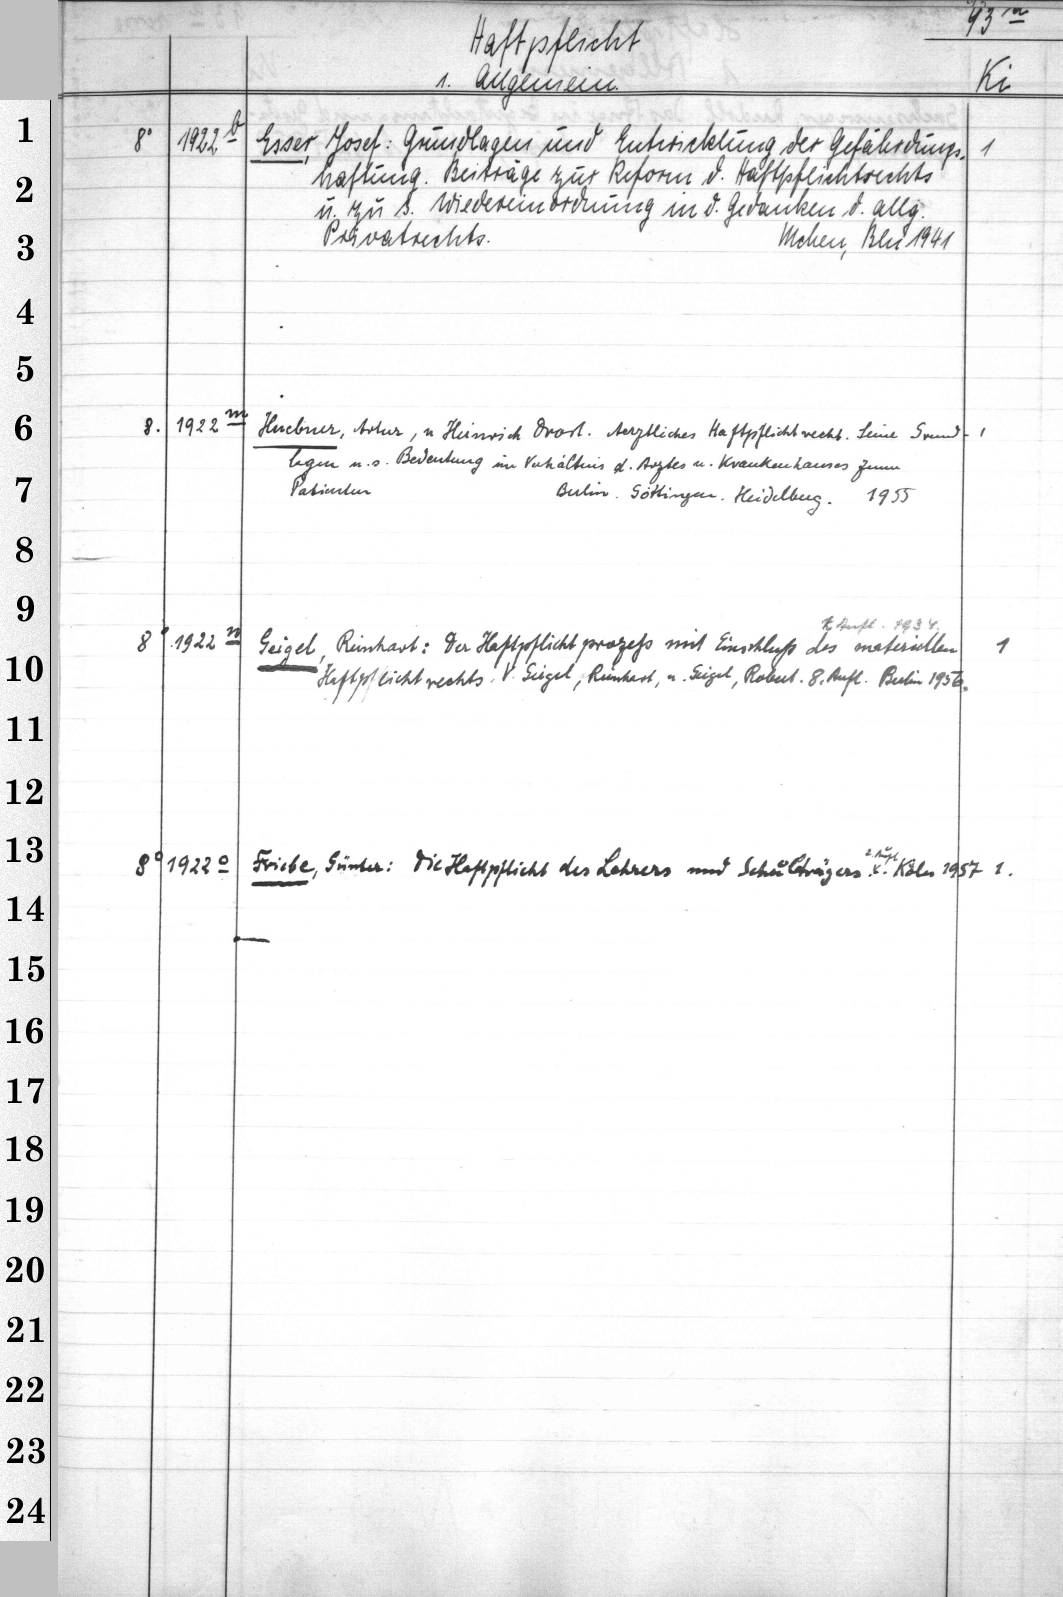 93 a
Haftpflicht
1. Allgemein.
Ki
1
8° 1922 b Esser, Josef: Grundlagen und Entwicklung der Gefährdungs- 1
2
haftung. Beiträge zur Reform d. Haftpflichtrechts
u. zu s. Wiedereinordnung in d. Gedanken d. allg.
3
Privatrechts. Mchen, Bln 1941
4
5
6
8. 1922 m Huebner, Artur, u Heinrich Drost. Aerztliches Haftpflichtrecht. Seine Grund- 1
lagen u. s. Bedeutung im Verhältnis d. Arztes u. Krankenhauses zum
7
Patienten Berlin. Göttingen. Heidelberg. 1955
8
9
Aufl. 1934.
8° 1922 n Geigel, Reinhart: Der Haftpflichtprozeß mit Einschluß des materiellen 1
10
Haftpflichtrechts. V. Geigel, Reinhart, u. Geigel, Robert. 8. Aufl. Berlin 1956.
11
12
13
2. Aufl.
8° 1922 o Friebe, Günter: Die Haftpflicht des Lehrers und Schulträgers. Köln 1957 1.
14
15
16
17
18
19
20
21
22
23
24